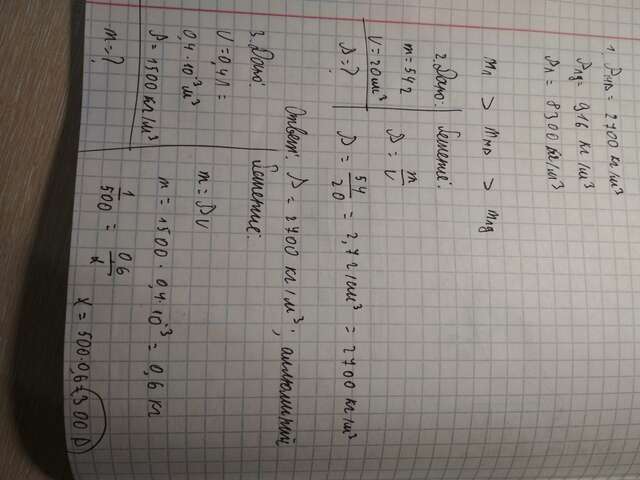 1. ρмв = 2700 кг/м³
ρлд = 916 кг/м³
ρл = 8300 кг/м³
mл > mмв > mлд
2. Дано:
m = 54г
V = 20см³
ρ = ?
Решение:
ρ = m/V
ρ = 54/20 = 2,7 г/см³ = 2700 кг/м³
Ответ: ρ = 2700 кг/м³; аллюминий
3. Дано:
V = 0,4 л =
0,4·10⁻³м³
ρ = 1500 кг/м³
m = ?
Решение:
m = ρV
m = 1500 · 0,4·10⁻³ = 0,6 кг
1/500 = 0,6/x
x = 500·0,6 = 300